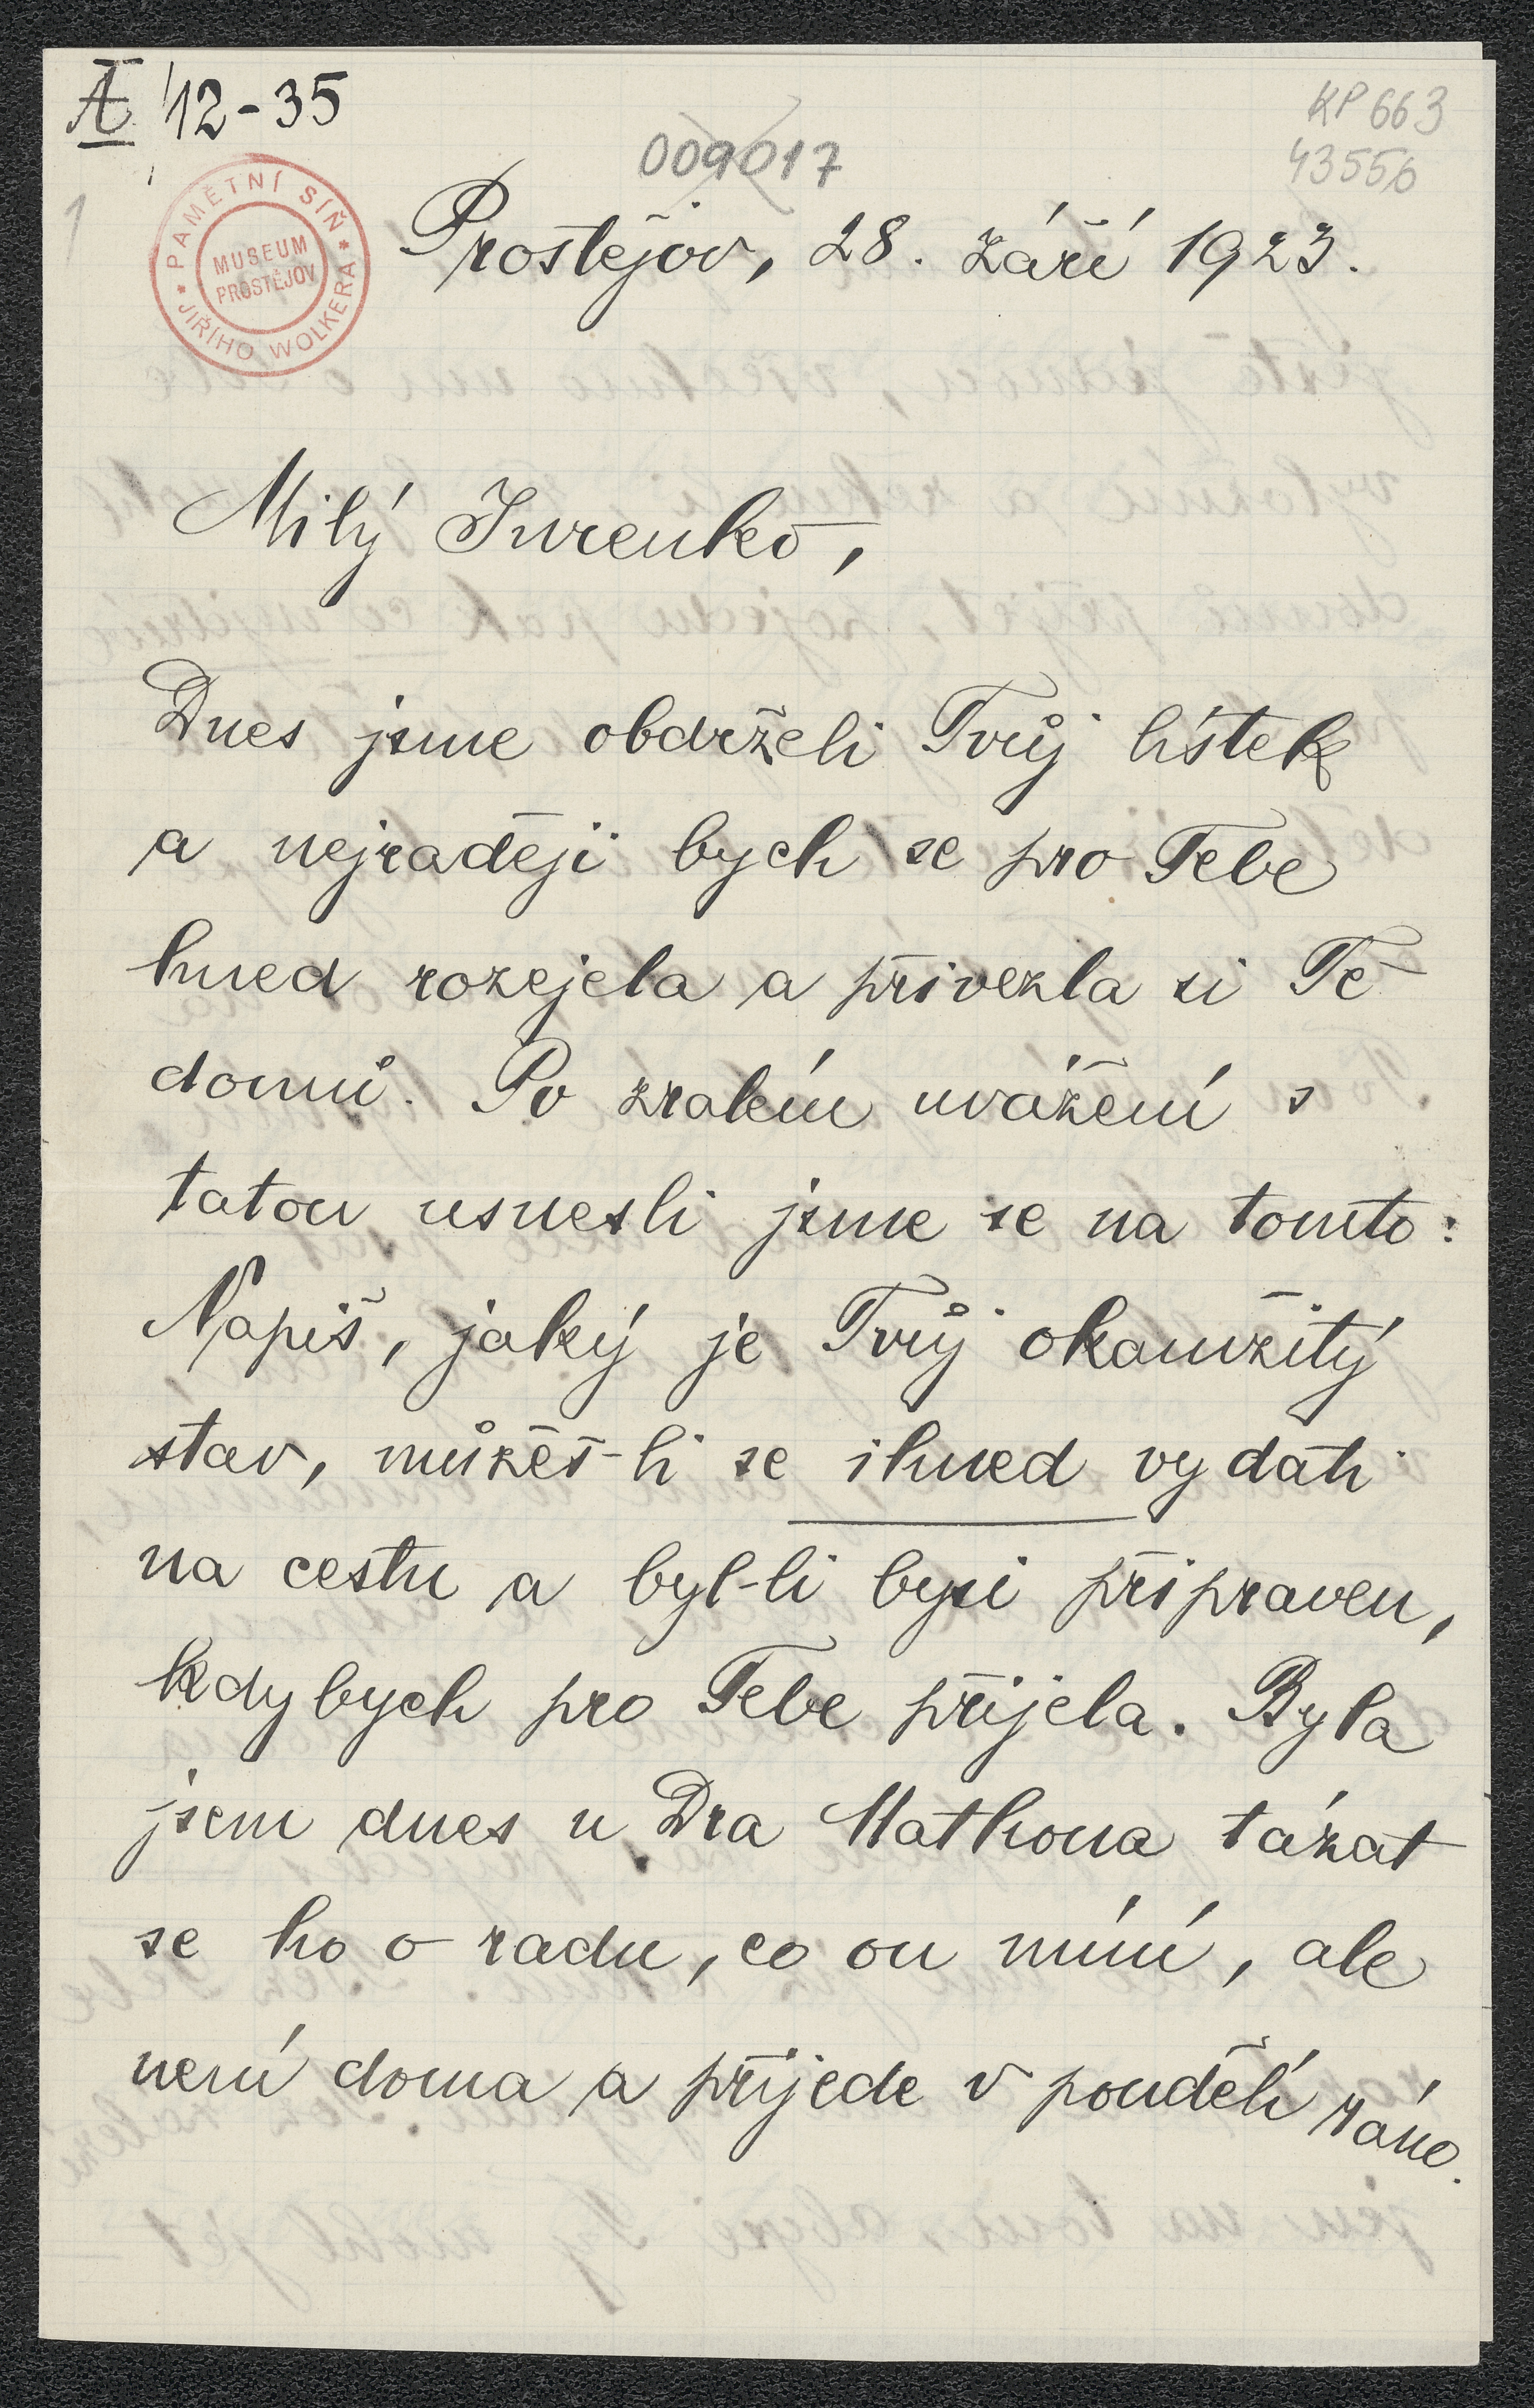 A 12-35
KP 663
009017
43556
1
PAMĚTNÍ SÍŇ
JIŘÍHO WOLKERA
MUSEUM
PROSTĚJOV
Prostějov, 28. září 1923.
Milý Jurenko,
Dnes jsme obdrželi Tvůj lístek
a nejraději bych se pro Tebe
hned rozejela a přivezla si Tě
domů. Po zralém uvážení s
tatou usnesli jsme se na tomto:
Napiš, jaký je Tvůj okamžitý
stav, můžeš-li se ihned vydati
na cestu a byl-li bysi připraven,
kdybych pro Tebe přijela. Byla
jsem dnes u Dra Mathona tázat
se ho o radu, co on míní, ale
není doma a přijede v pondělí ráno.